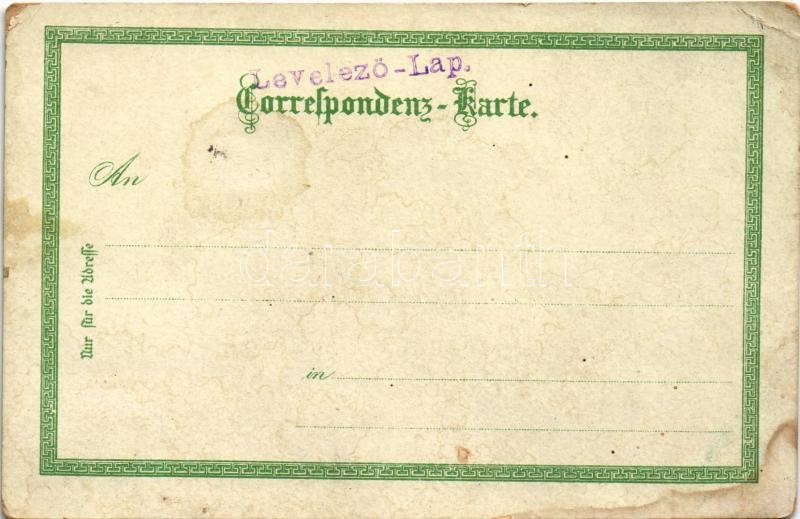 Levelező-Lap.
Correspondenz-Karte.
An
Nur für die Adresse
darabanth
in